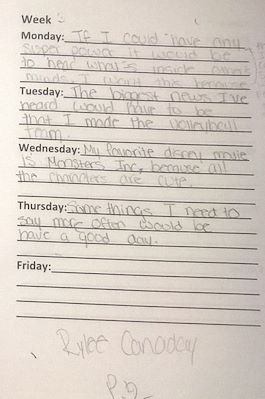 Week
Monday: If I could have any
super power it would be
to hear what's inside
minds. I want this because
Tuesday: The biggest news I've
heard would have to be
that I made the volleyball
team.
Wednesday: My favorite disney movie
is Monsters Inc, because all
the characters are cute.
Thursday: Some things I need to
say more often would be
have a good day.
Friday:
Rylee Canaday